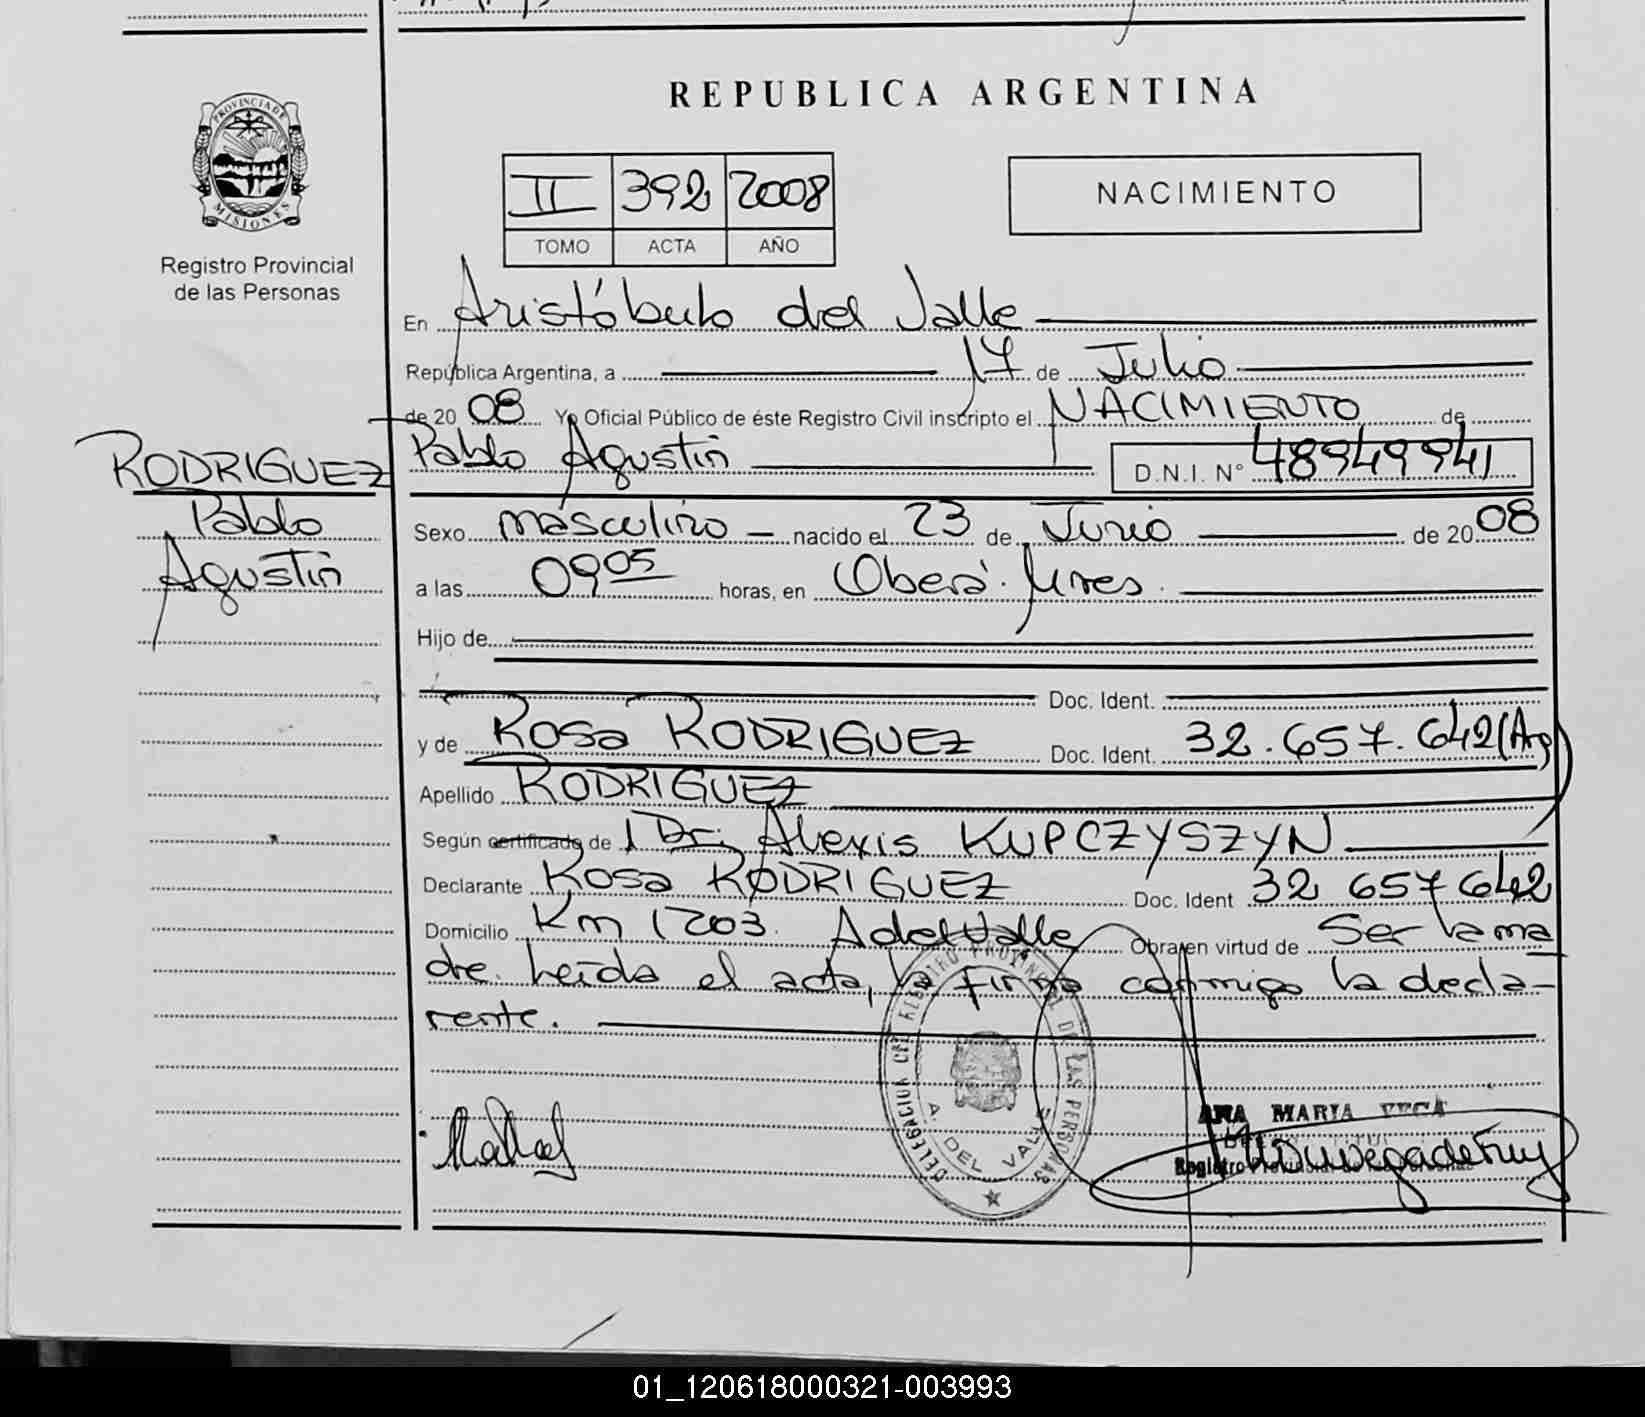 REPUBLICA ARGENTINA
PROVINCIA DE
MISIONES
Registro Provincial
de las Personas
II 392 2008
TOMO ACTA AÑO
NACIMIENTO
En Aristóbulo del Valle
República Argentina, a 17 de Julio
de 20 08 Yo Oficial Público de éste Registro Civil inscripto el NACIMIENTO de
RODRIGUEZ Pablo Agustín D.N.I. N° 48949941
Pablo
Agustín
Sexo masculino nacido el 23 de Junio de 20 08
a las 09 05 horas, en Oberá. Mnes.
Hijo de
Doc. Ident.
y de Rosa RODRIGUEZ Doc. Ident. 32.657.642 (Arg)
Apellido RODRIGUEZ
Según certificado de Dr. Alexis KUPCZYSZYN
Declarante Rosa RODRIGUEZ Doc. Ident 32 657 642
Domicilio Km 1203. A del Valle Obra en virtud de Ser la ma
dre. Leída el acta, la firma conmigo la decla-
rente.
REGISTRO PROVINCIAL DE LAS PERSONAS
DELEGACION
A. DEL VALLE
ANA MARIA VEGA
Registro Provincial de las Personas
01_120618000321-003993